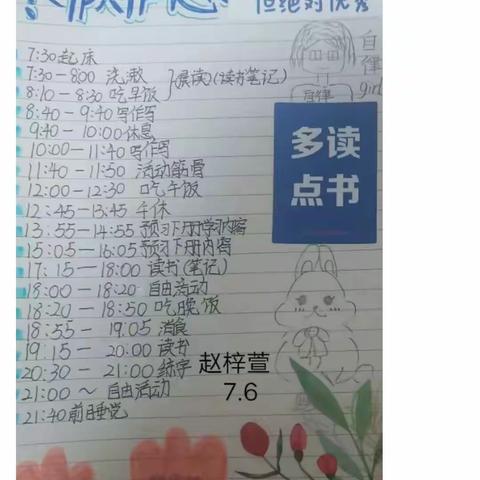 但绝对优秀
自律girl
自律
7:30起床
7:30－8:00 洗漱
(晨读)(读书笔记)
8:10－8:30 吃早饭
8:40－9:40写作写
9:40－10:00休息
10:00－11:40写作写
11:40－11:50 活动筋骨
12:00－12:30 吃午饭
12:45－13:45 午休
13:55－14:55 预习下册学习内容
15:05－16:05 预习下册内容
17:15－18:00 读书(笔记)
18:00－18:20 自由活动
18:20－18:50 吃晚饭
18:55－19:05 消食
19:15－20:00 读书
20:30－21:00 练字
21:00～ 自由活动
21:40前睡觉
多读
点书
赵梓萱
7.6